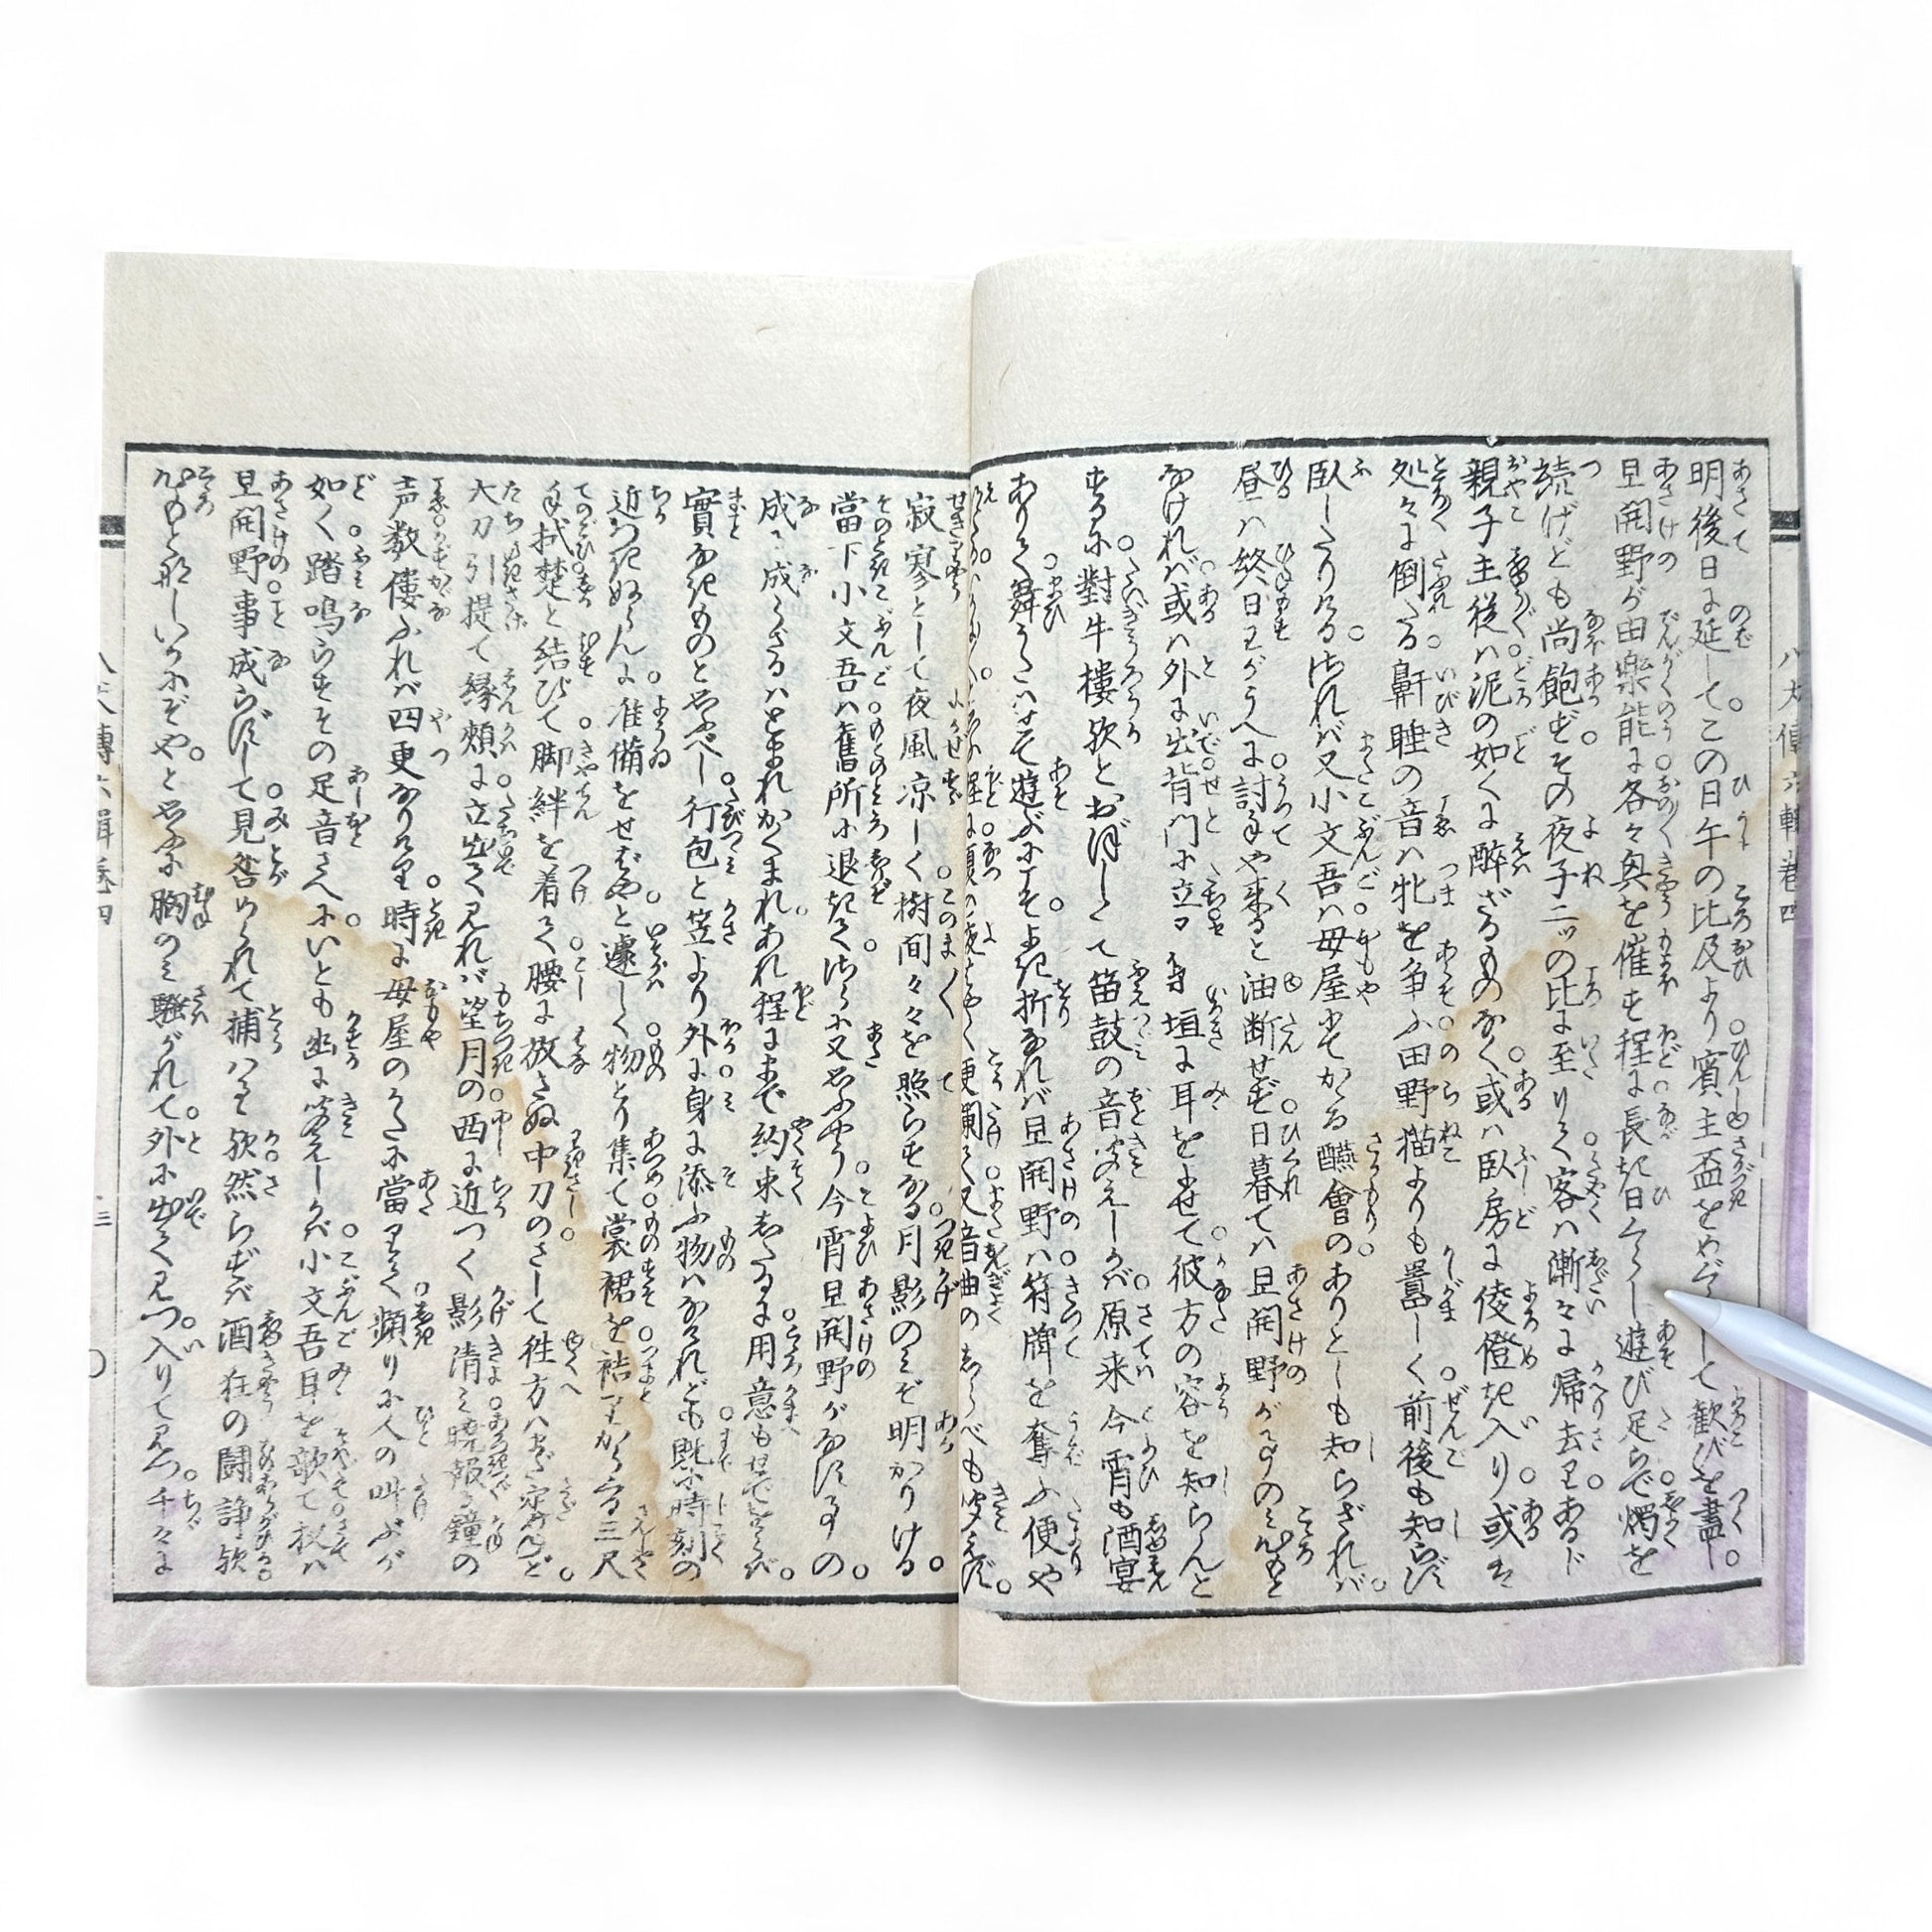 明後日に延してこの日午の比及より賓主盃をめぐらして歓びを盡す
旦開野が田楽能に各々興を催す程に長き日ぐらし遊び足らで燭を
続げども尚飽ずその夜子二ツの比に至りて客は漸々に帰去りあるじ
親子主従は泥の如くに醉ざるものなく或は臥房に倰僜き入り或は
処々に倒るる鼾睡の音は牝を争ふ田野猫よりも囂しく前後も知らず
臥したりけるされば又小文吾は母屋にてかかる醼會のありとしも知らざれば
昼は終日わがうへに討手や来ると油断せず日暮ては旦開野が事のみ心もと
なければ或は外に出背門に立
垣に耳をよせて彼方の容を知らんと
するに對牛樓歟とおぼしくて笛鼓の音聞えしかば原来今宵も酒宴
ありて舞うたはせて遊ぶにこそよき折なれば旦開野は符牌を奪ふ便や
程に
更闌て又音曲のしらべも聞えず
寂寥として夜風凉しく樹間々々を照らすなる月影のみぞ明かりける
當下小文吾は舊所に退きてつらつら又思ふやう今宵旦開野がなす事の
成と成らざるはとまれかくまれあれ程にまで約束したるに用意もせでをらば
實なきものと思ふべし行包と笠より外に身に添ふ物はなけれども既に時刻の
近つきぬらんに准備をせばやと遽しく物とり集て裳裾を褰げからげ三尺
手拭楚と結びて脚絆を着て腰に放さぬ中刀のさして往方はまだ定めねど
大刀引提て縁頬に立出て見れば望月の西に近つく影清み曉報る鐘の
声数僂ふれば四更なりける時に母屋のかたに當りて頻りに人の叫ぶが
如く踏鳴らすその足音さへにいとも幽に聞えしかば小文吾耳を欹て扨は
旦開野事成らずして見咎められて捕はれ歟然らずば酒狂の闘諍歟
心もと那しいかにぞやと思ふに胸のみ騒がれて外に出て見つ入りて見つ千々に
八犬傳六輯巻四
三